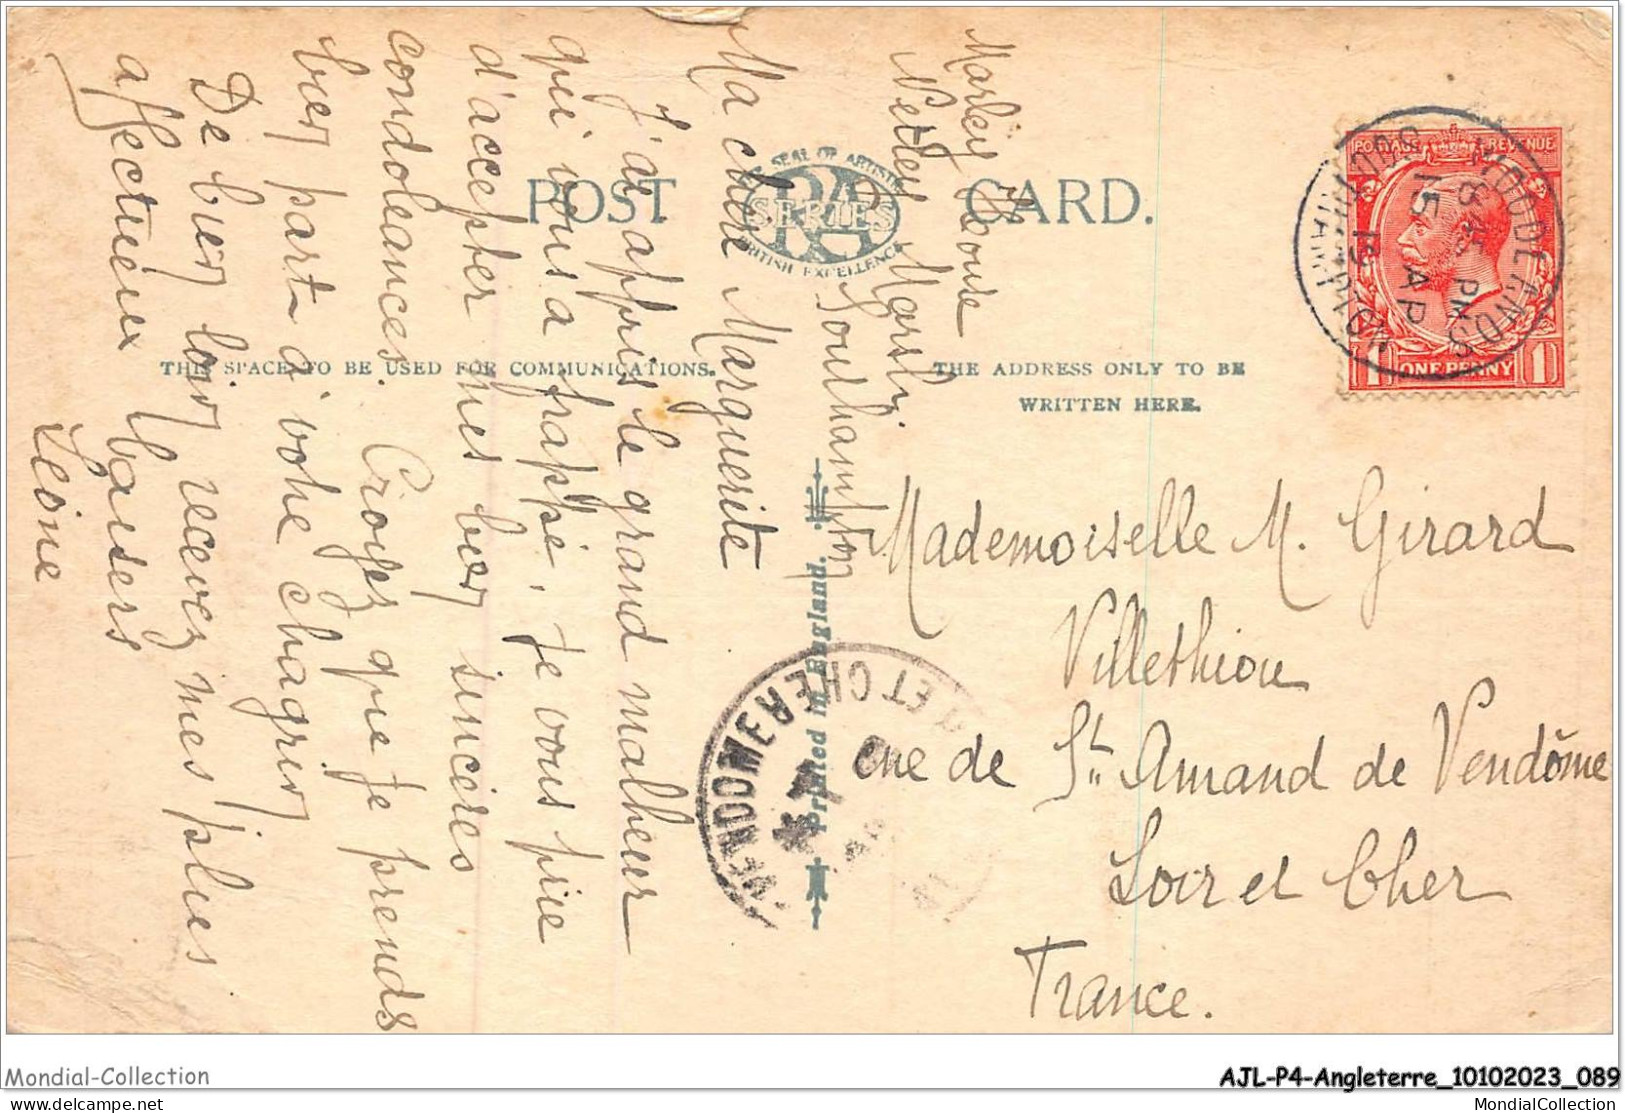 POST CARD.
THE SEAL OF ARTISTIC
RA
SERIES
BRITISH EXCELLENCE
THIS SPACE TO BE USED FOR COMMUNICATIONS.
THE ADDRESS ONLY TO BE
WRITTEN HERE.
Printed in England.
Marley House
Netley Marsh
Southampton
Ma chère Marguerite
J'ai appris le grand malheur
qui vous a frappé, je vous prie
d'accepter mes bien sincères
condoléances. Croyez que je prends
bien part à votre chagrin
De bien loin recevez mes plus
affectueux baisers
Leone
POSTAGE REVENUE
ONE PENNY
1 1
WOODLANDS
8 45 PM
15 AP
19
SOUTHAMPTON
Mademoiselle M. Girard
Villethiou
cne de St. Amand de Vendôme
Loir et Cher
France.
VENDOME R.P.
ET CHER
Mondial-Collection
AJL-P4-Angleterre_10102023_089
delcampe.net
MondialCollection